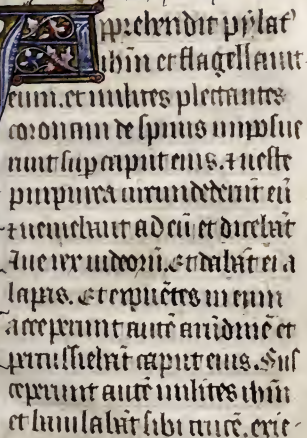 Apprehendit pylat᷒
ihm̄ et flagellauit
eum. et milites plectentes
coronam de spinis imposue
runt sup caput eius. ⁊ ueste
purpurea circundederūt eū
⁊ ueniebant ad eū et dicebāt
Aue rex iudeorū. Et dabāt ei a
lapas. Et expuētes in eum
acceperunt autē arūdinē et
percussiebāt caput eius. Sus
ceperunt autē milites ihm̄
et baiulabāt sibi crucē. exie